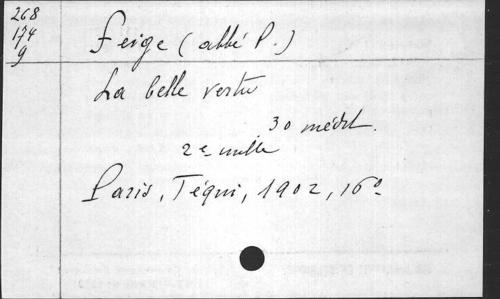 268
174
9
Feige (abbé P.)
La belle vertu
30 médit.
2e mille
Paris, Téqui, 1902, 16°